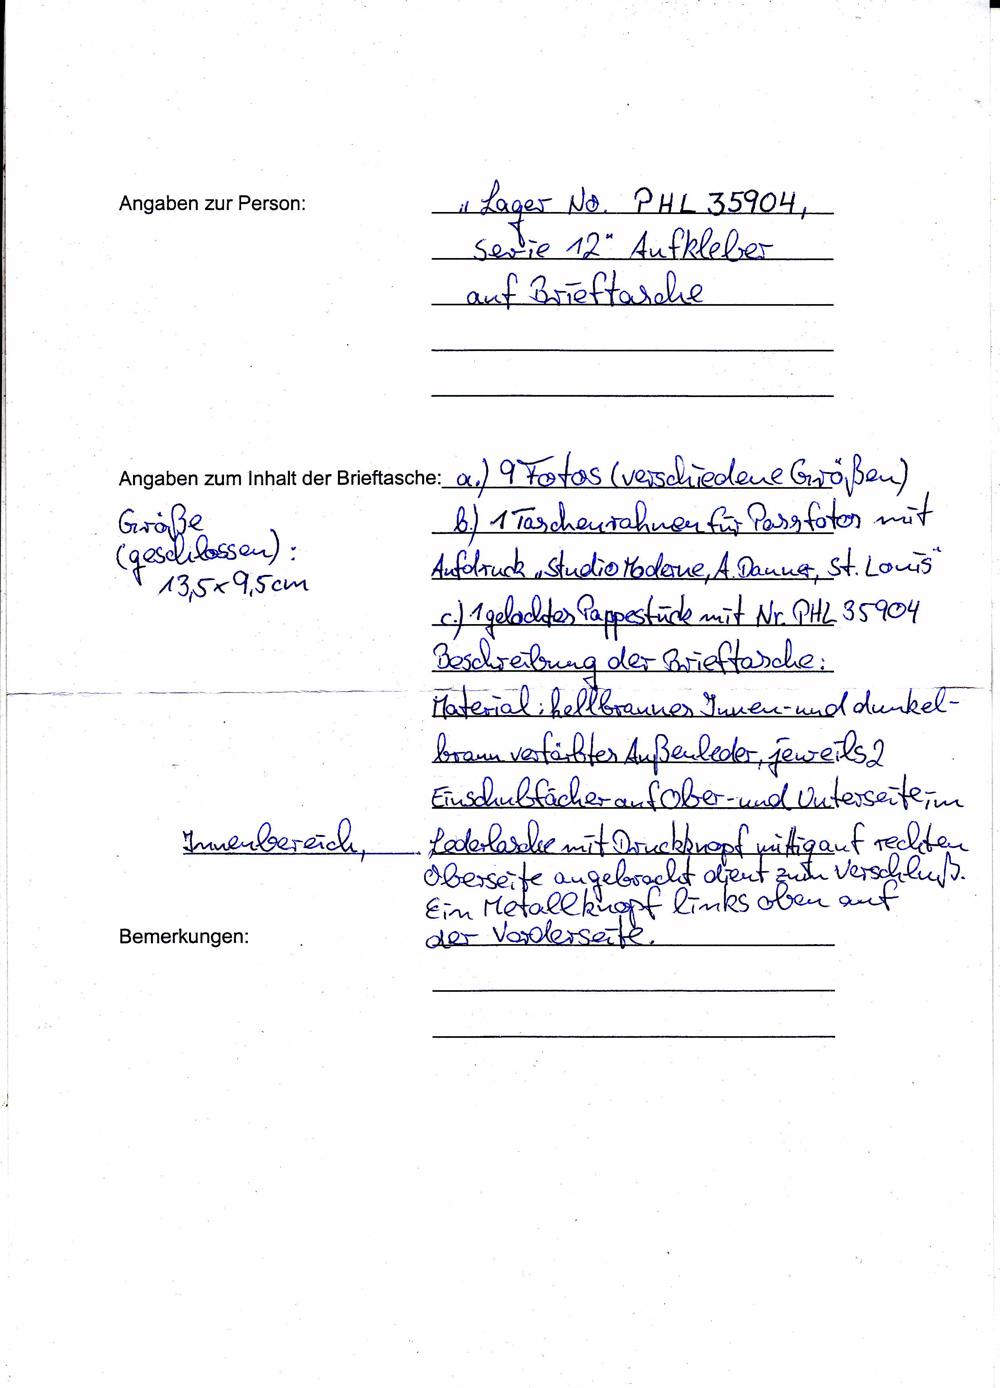 Angaben zur Person: „Lager No. PHL 35904,
Serie 12“ Aufkleber
auf Brieftasche
Angaben zum Inhalt der Brieftasche: a.) 9 Fotos (verschiedene Größen)
Größe
(geschlossen):
13,5 x 9,5 cm
b.) 1 Taschenrahmen für Passfotos mit
Aufdruck „Studio Moderne, A. Danner, St. Louis“
c.) 1 gelochtes Pappestück mit Nr. PHL 35904
Beschreibung der Brieftasche:
Material: hellbraunes Innen- und dunkel-
braun verfärbtes Außenleder, jeweils 2
Einschubfächer auf Ober- und Unterseite im
Innenbereich, Lederlasche mit Druckknopf mittig auf rechten
Oberseite angebracht dient zum Verschluß.
Ein Metallknopf links oben auf
Bemerkungen: der Vorderseite.